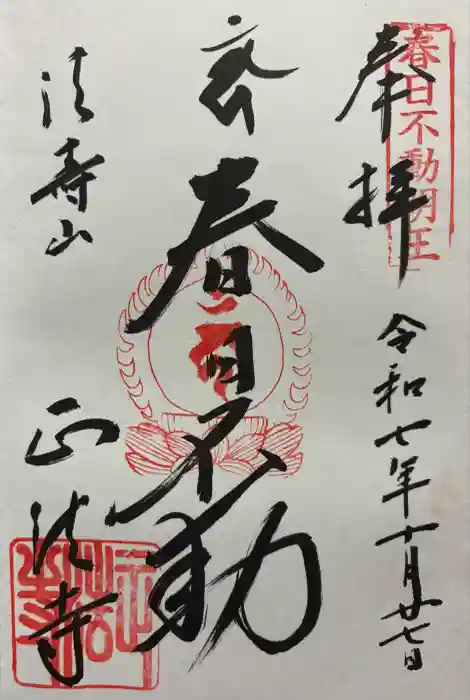 奉拝
春日不動明王
令和七年十月廿七日
春日不動
法寿山
正法寺